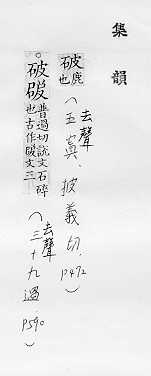 集韻
破麃也（去聲 五寘，披義切，P472）
破䃺普過切說文石碎也古作䃺文三（去聲 三十九過，P590）